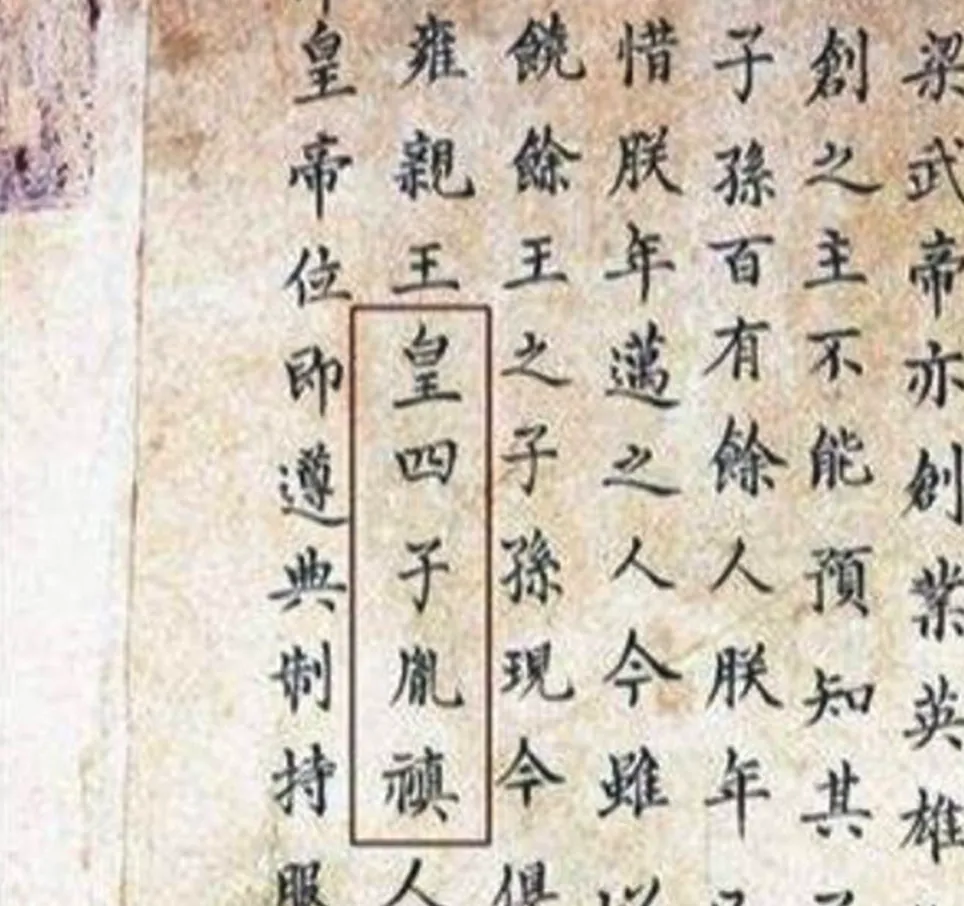 梁武帝亦創業英雄
創之主不能預知其
子孫百有餘人朕年
惜朕年邁之人今雖
饒餘王之子孫現今俱
雍親王皇四子胤禛人
皇帝位即遵典制持服